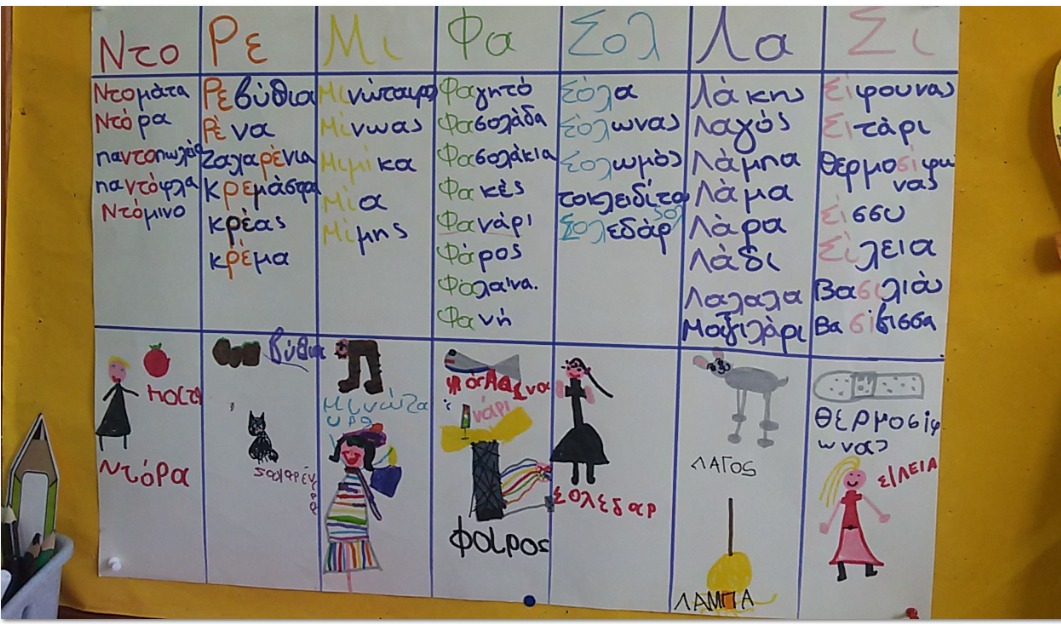 Ντο Ρε Μι Φα Σολ Λα Σι
Ντομάτα
Ντόρα
παντοπωλείο
παντόφλα
Ντόμινο
Ρεβύθια
Ρένα
Ζαχαρένια
Κρεμάστρα
κρέας
κρέμα
Μινώταυρο
Μίνωας
Μιμίκα
Μία
Μίμης
Φαγητό
Φασολάδα
Φασολάκια
Φακές
Φανάρι
Φάρος
Φάλαινα.
Φανή
Σόλα
Σόλωνας
Σολωμός
το κλειδί του σολ
Σολεδάρ
Λάκης
Λαγός
Λάμπα
Λάμα
Λάρα
Λάδι
Λαλαλα
Μαξιλάρι
Σίφουνας
Σιτάρι
θερμοσίφω
νας
Σίσσυ
Σίλεια
Βασιλιάς
Βασίλισσα
ΝΤΟΡΑ
βύθια
Μινώτα
υρο
νάρι
ΦΟΙΡΟΣ
ΣΟΛΕΔΑΡ
ΛΑΓΟΣ
ΛΑΜΠΑ
ΘΕΡΜΟΣΙΦ
ωνας
ΣΙΛΕΙΑ